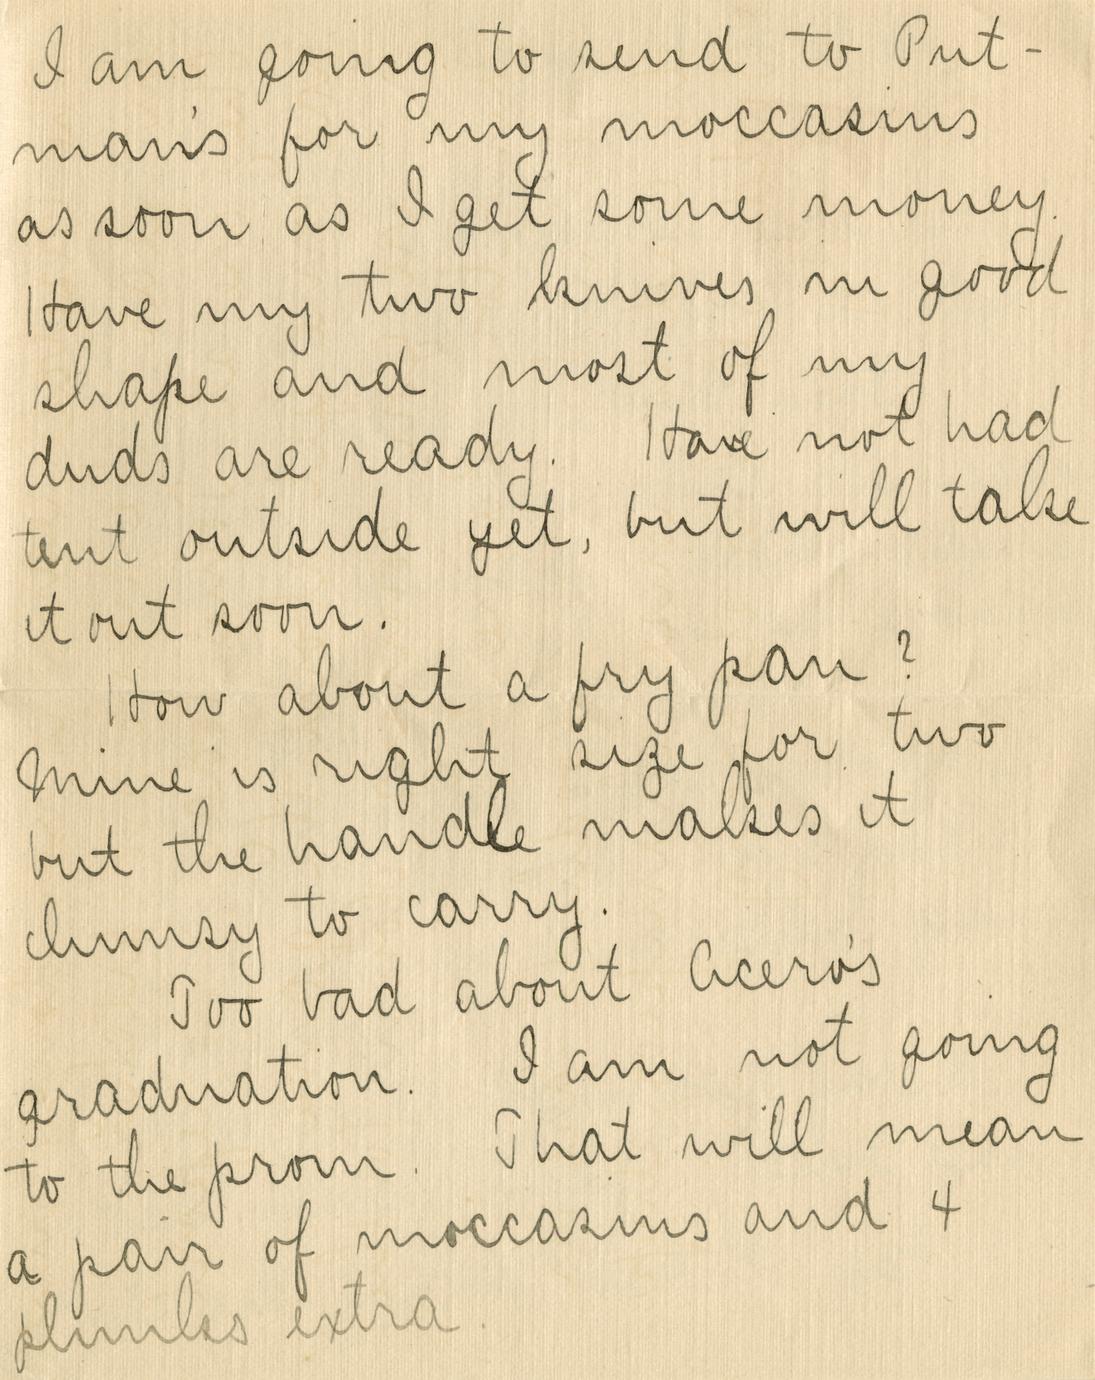 I am going to send to Put-
man's for my moccasins
as soon as I get some money.
Have my two knives in good
shape and most of my
duds are ready. Have not had
tent outside yet, but will take
it out soon.
How about a fry pan?
Mine is right size for two
but the handle makes it
clumsy to carry.
Too bad about Acero's
graduation. I am not going
to the prom. That will mean
a pair of moccasins and 4
plunks extra.